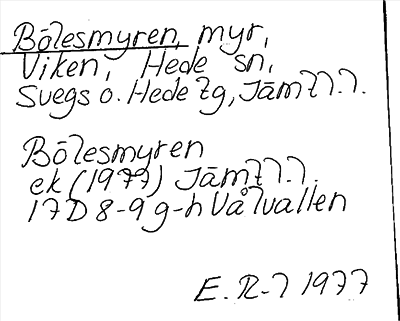 Bölesmyren, myr,
Viken, Hede sn,
Svegs o. Hede tg, Jämtl.l.
Bölesmyren
ek (1977) Jämtl.l.
17D 8-9 g-h Vålvallen
E. R-l 1977